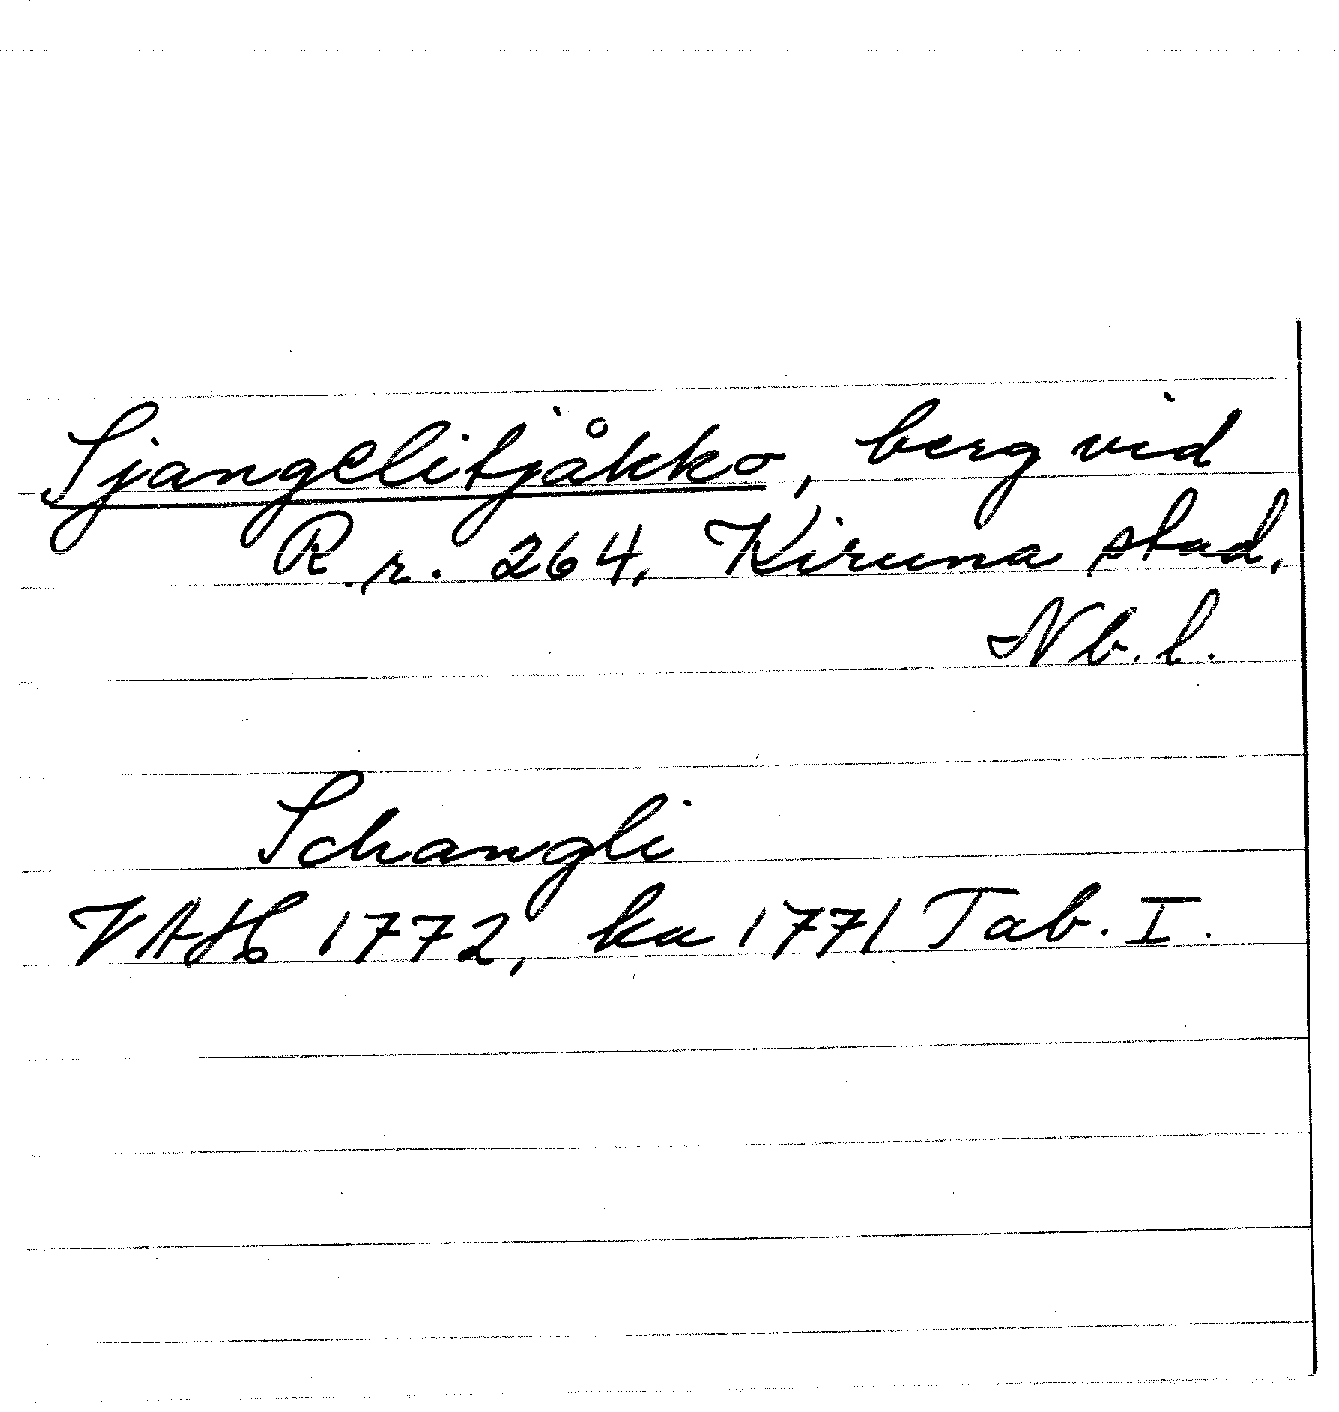 Sjangelitjåkko, berg vid
R.r. 264, Kiruna stad,
Nb. l.
Schangli
VAH 1772, ka 1771 Tab. I.